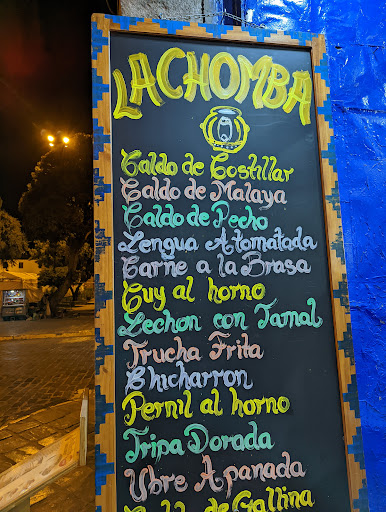 LA CHOMBA
Caldo de Costillar
Caldo de Malaya
Caldo de Pecho
Lengua Atomatada
Carne a la Brasa
Cuy al horno
Lechon con Tamal
Trucha Frita
Chicharron
Pernil al horno
Tripa Dorada
Ubre Apanada
Caldo de Gallina